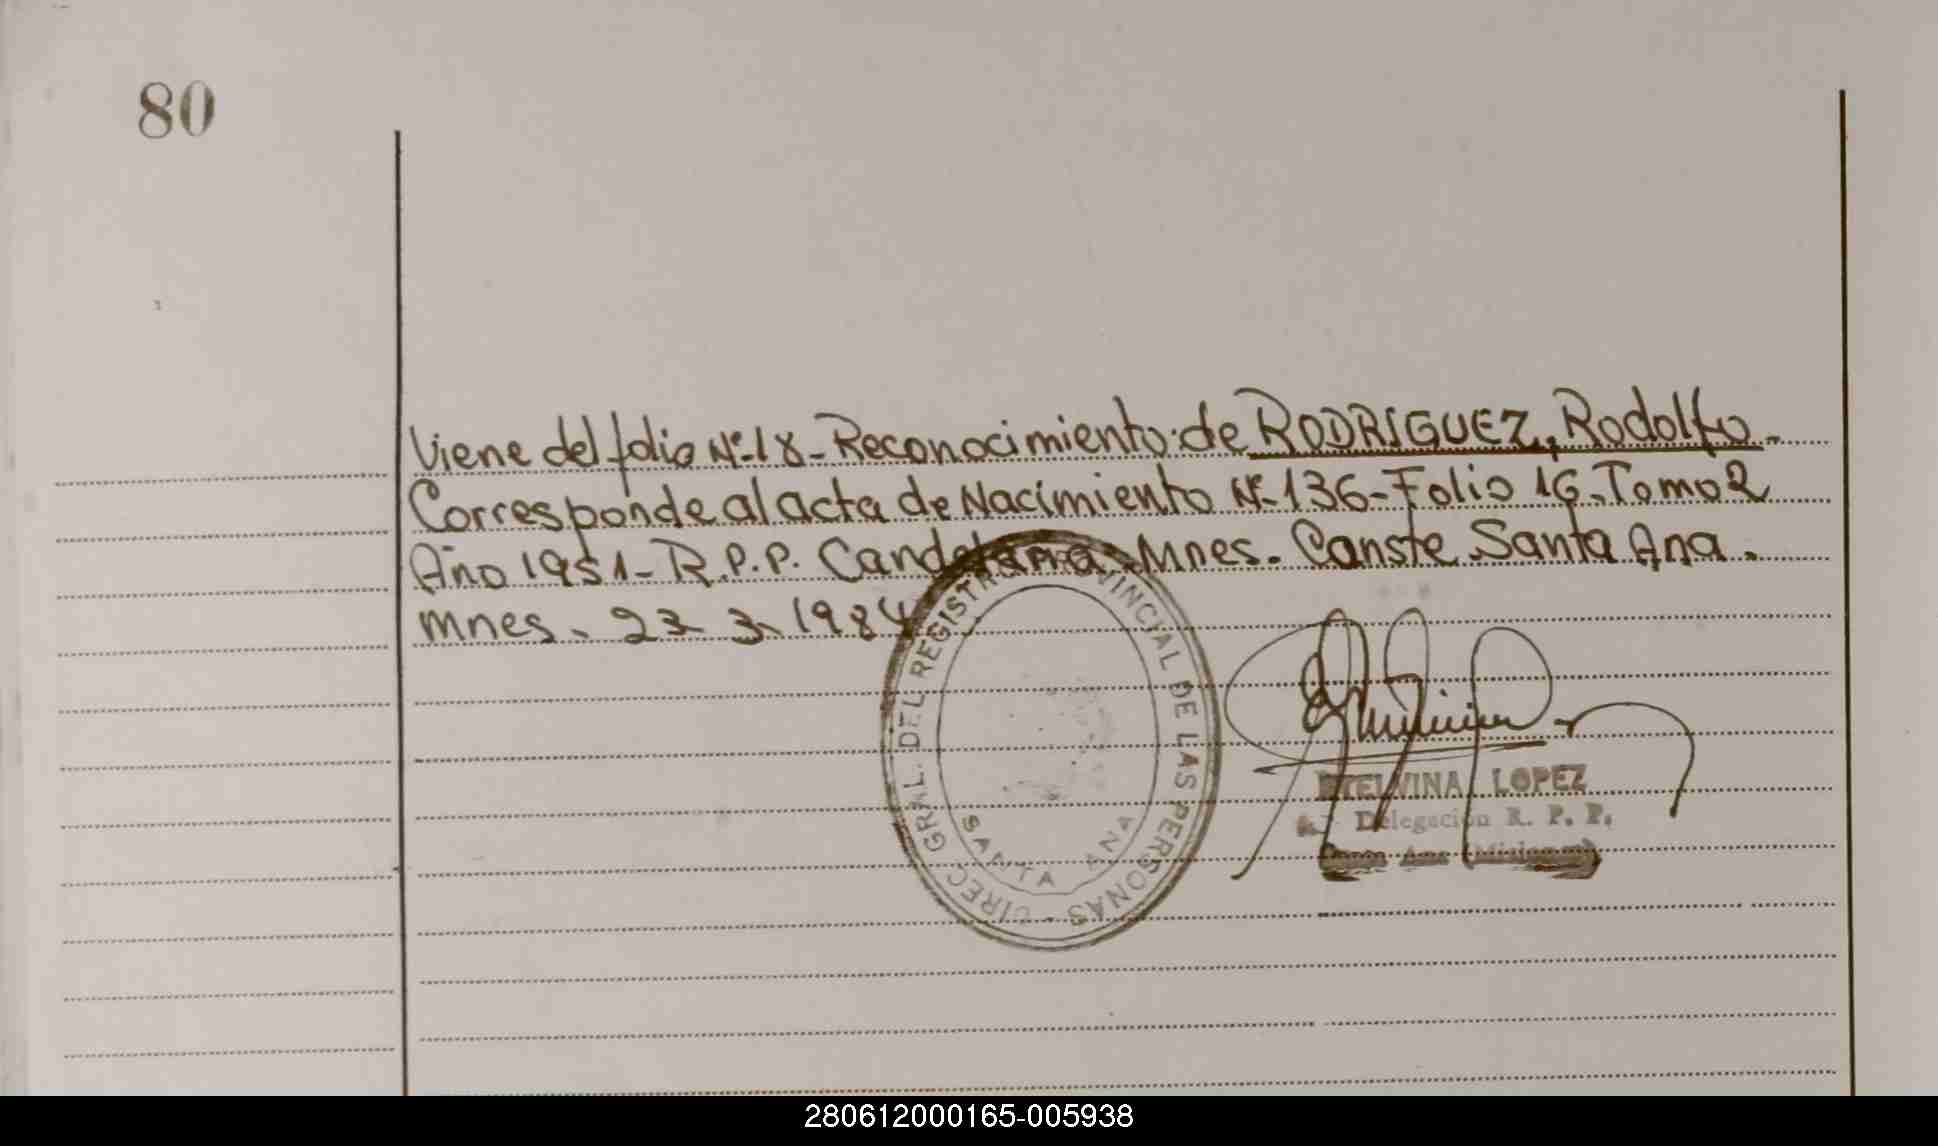 80
Viene del folio Nº 18 - Reconocimiento de RODRIGUEZ, Rodolfo -
Corresponde al acta de Nacimiento Nº 136 - Folio 16 - Tomo 2
Año 1951 - R.P.P. Candelaria - Mnes. Conste Santa Ana -
Mnes - 23 - 3 - 1984
DIREC. GRAL. DEL REGISTRO PROVINCIAL DE LAS PERSONAS -
SANTA ANA
ETELVINA LOPEZ
Delegación R. P. P.
Santa Ana (Misiones)
280612000165-005938